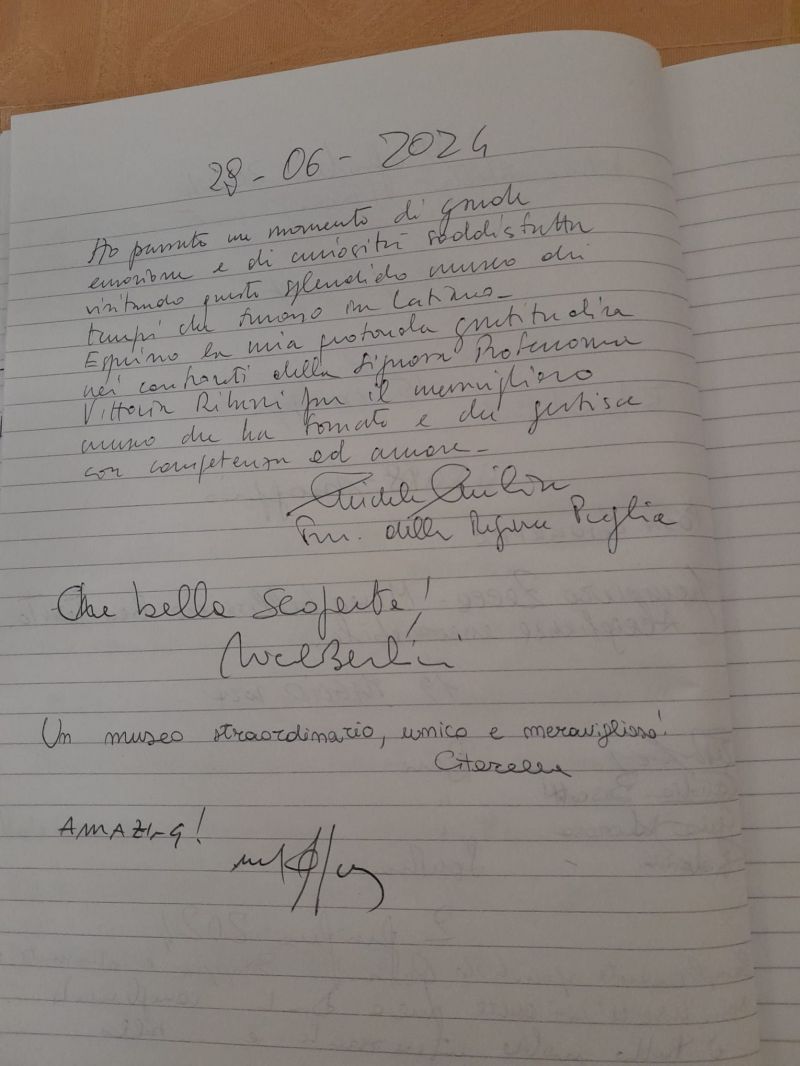 28-06-2024
Ho passato un momento di grande
emozione e di curiosità soddisfatta
visitando questo splendido museo dei
tempi che furono in Latiano-
Esprimo la mia profonda gratitudine
nei confronti della Signora Professoressa
Vittoria Ribezzi per il meraviglioso
museo che ha formato e che gestisce
con competenza ed amore-
della Regione Puglia
Che bella scoperta!
Un museo straordinario, unico e meraviglioso!
Citarella
AMAZING!